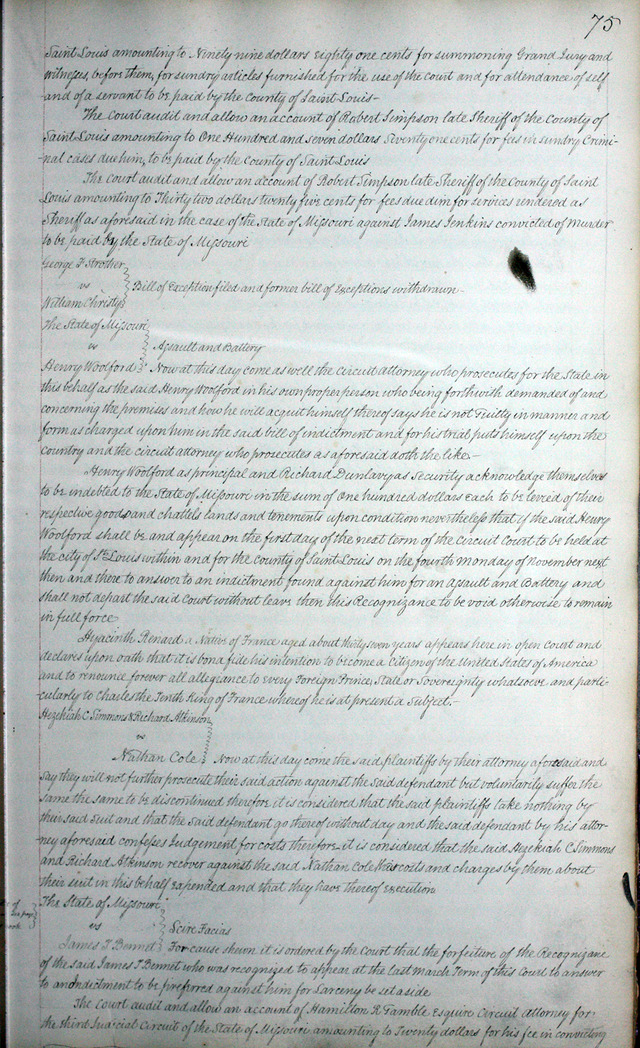 75
Saint Louis amounting to Ninety nine dollars eighty one cents for summoning Grand Jury and
witnesses, before them, for sundry articles furnished for the use of the Court and for attendance of self
and of a servant to be paid by the County of Saint Louis-
The Court audit and allow an account of Robert Simpson late Sheriff of the County of
Saint Louis amounting to One Hundred and seven dollars Seventy one cents for fees in sundry Crimi-
-nal cases due him, to be paid by the County of Saint Louis
The Court audit and allow an account of Robert Simpson late Sheriff of the County of Saint
Louis amounting to Thirty two dollars twenty five cents for fees due dim for services rendered as
Sheriff as aforesaid in the case of the State of Missouri against James Jenkins convicted of Murder
to be paid by the State of Missouri
George F Strother
vs Bill of Exception filed and former bill of Exceptions withdrawn-
William Christy
The State of Missouri
vs Assault and Battery
Henry Woolford Now at this day come as well the circuit attorney who prosecutes for the State in
this behalf as the said Henry Woolford in his own proper person who being forthwith demanded of and
concerning the premises and how he will acquit himself thereof says he is not Guilty in manner and
form as charged upon him in the said bill of indictment and for his trial puts himself upon the
Country and the circuit attorney who prosecutes as aforesaid doth the like.-
Henry Woolford as principal and Richard Dunlavy as Security acknowledge themselves
to be indebted to the State of Missouri in the sum of One hundred dollars Each to be levied of their
respective goods and chattels lands and tenements upon condition nevertheless that if the said Henry
Woolford shall be and appear on the first day of the next term of the Circuit Court to be held at
the city of St Louis within and for the County of Saint Louis on the fourth Monday of November next
then and there to answer to an indictment found against him for an Assault and Battery and
shall not depart the said Court without leave then this Recognizance to be void otherwise to remain
in full force
Hyacinth Renard a Native of France aged about thirty seven years appears here in open Court and
declares upon oath that it is bona fide his intention to become a Citizen of the United States of America
and to renounce forever all allegiance to every Foreign Prince, State or Sovereignty whatsoever and parti-
cularly to Charles the Tenth King of France whereof he is at present a Subject.-
Hezekiah C Simmons & Richard Atkinson
vs
Nathan Cole Now at this day come the said plaintiffs by their attorney aforesaid and
say they will not further prosecute their said action against the said defendant but voluntarily suffer the
same the same to be discontinued therefore it is considered that the said plaintiffs take nothing by
their said suit and that the said defendant go thereof without day and the said defendant by his attor-
ney aforesaid confesses Judgement for costs therefore it is considered that the said Hezekiah C Simmons
and Richard Atkinson recover against the said Nathan Cole their costs and charges by them about
their suit in this behalf expended and that they have thereof execution
The State of Missouri
vs Scire Facias
James T Bennet For cause shewn it is ordered by the Court that the forfeiture of the Recognizance
of the said James T Bennet who was recognized to appear at the last March Term of this Court to answer
to an indictment to be preferred against him for Larceny be set aside
The Court audit and allow an account of Hamilton R Gamble Esquire Circuit Attorney for
the third Judicial Circuit of the State of Missouri amounting to Twenty dollars for his fee in convicting